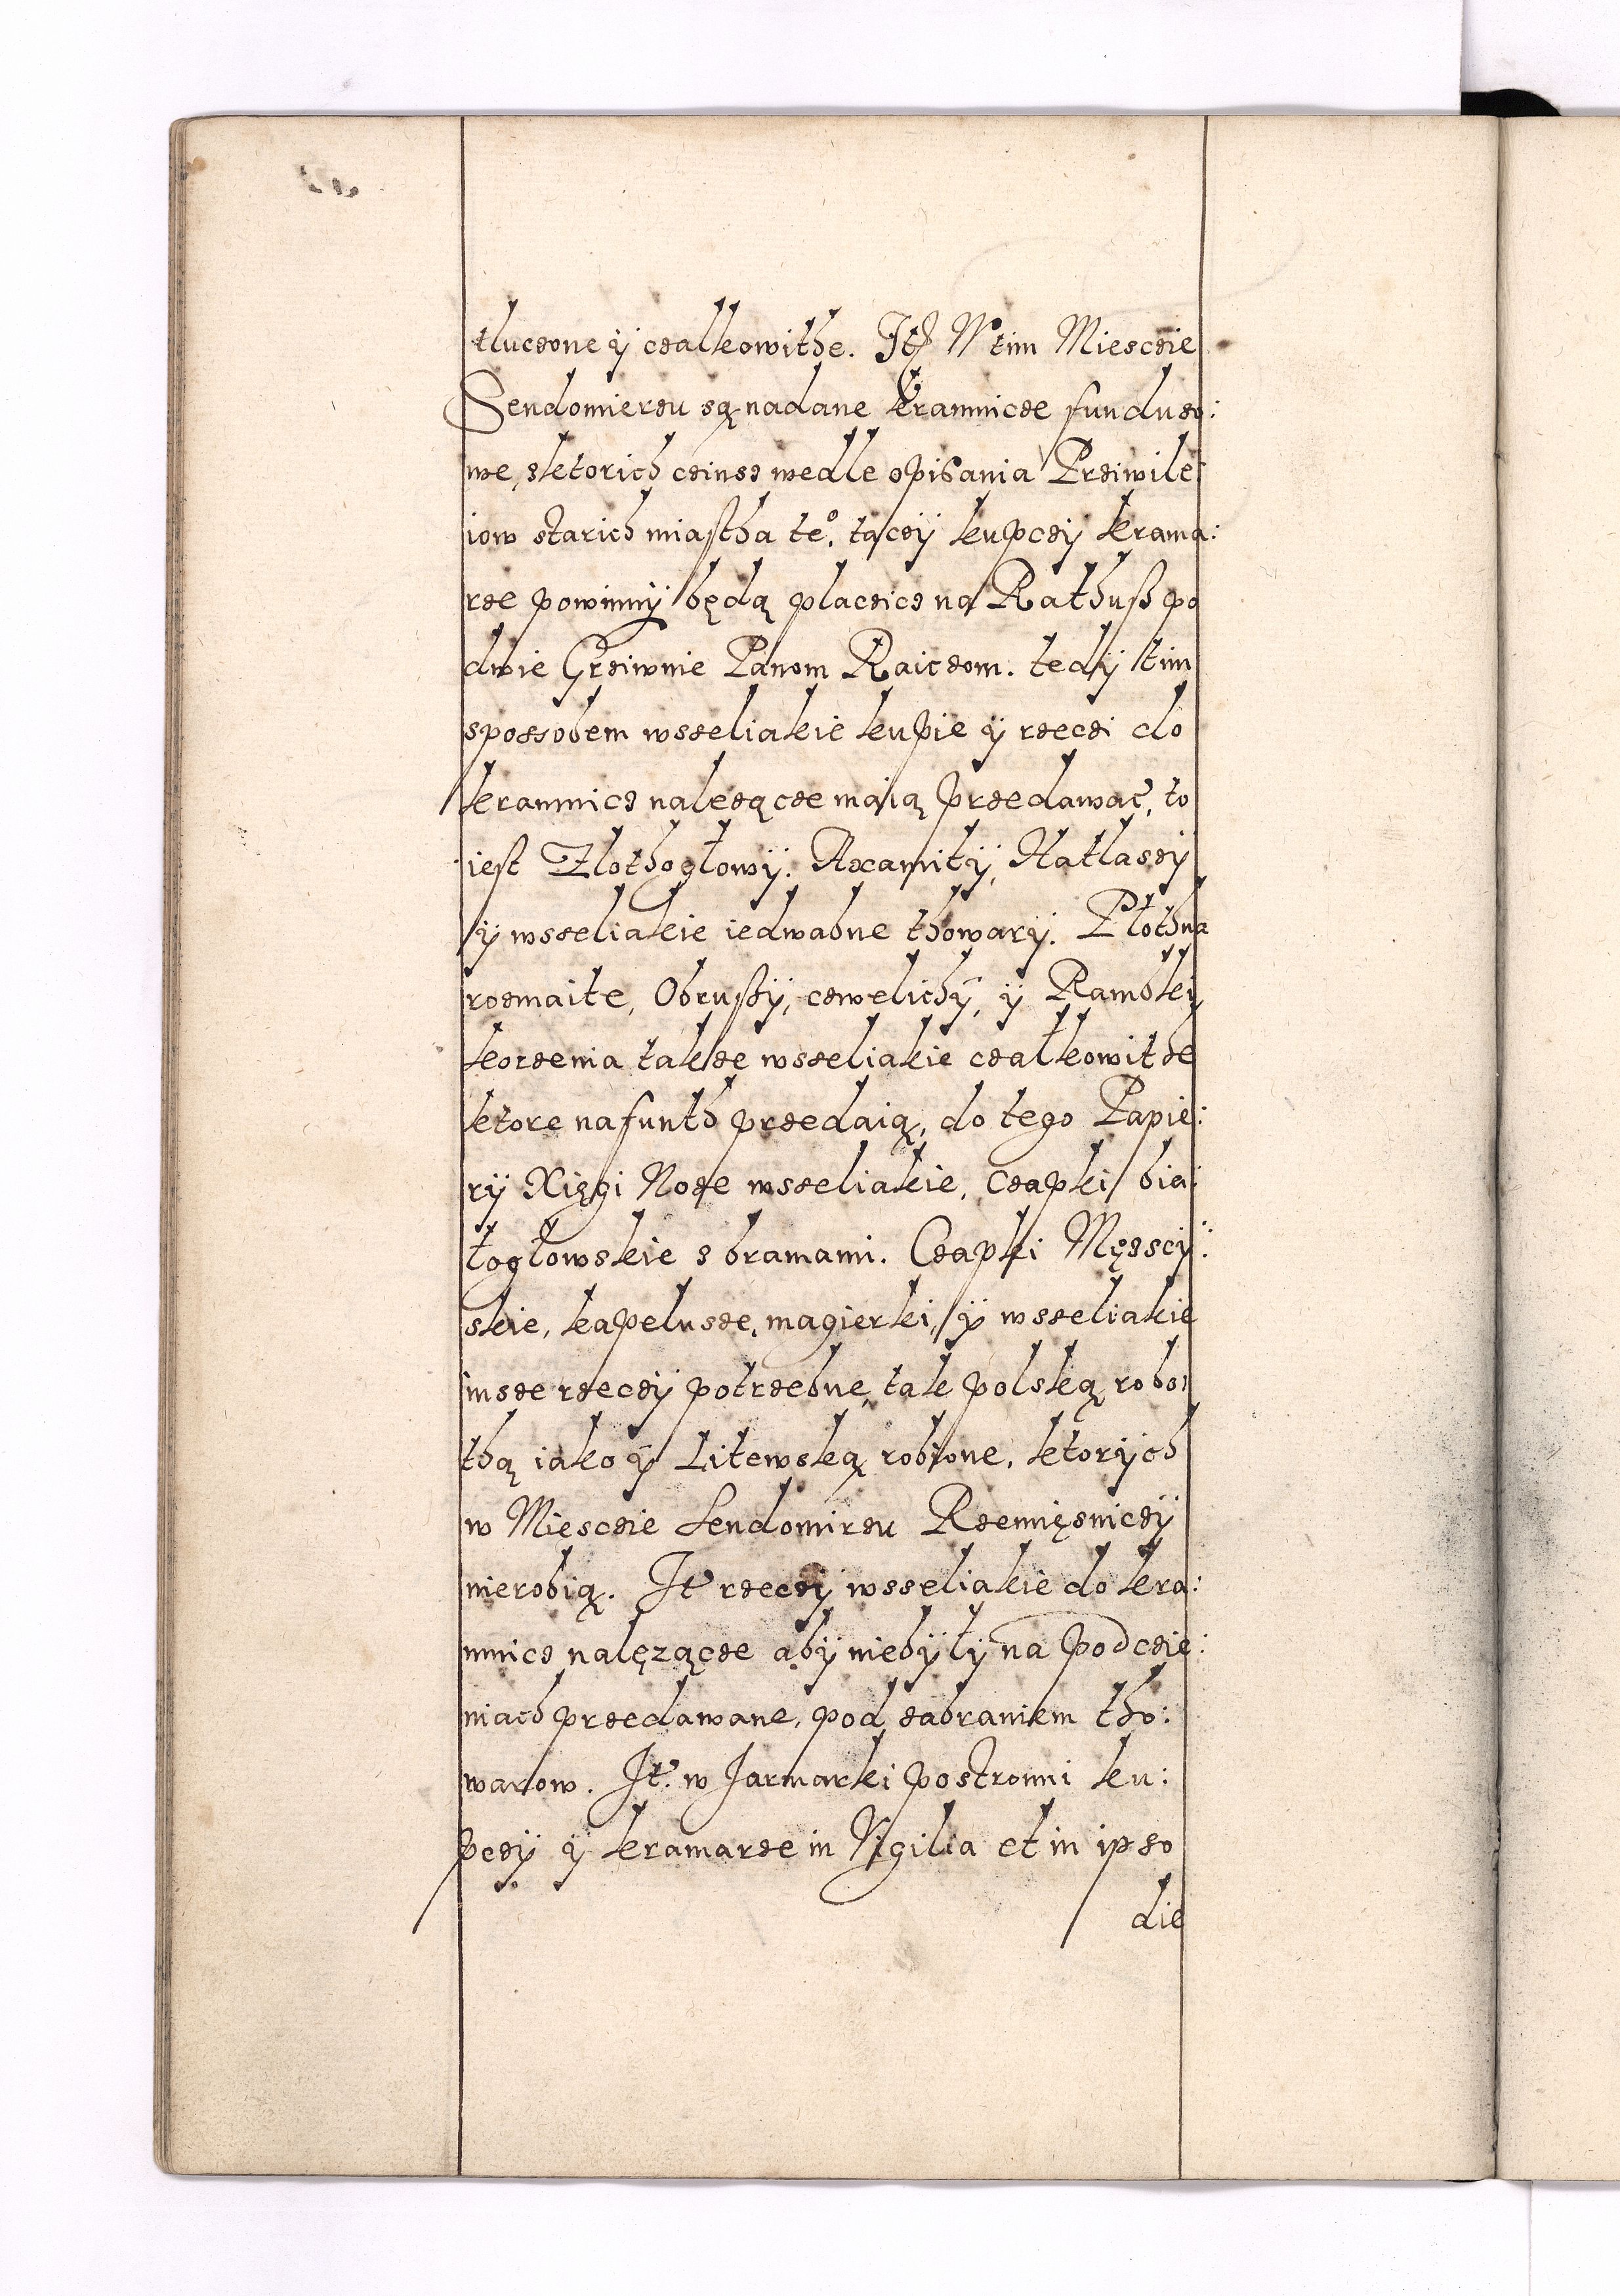 tluczone ÿ czalkowithe. It[em] W tim Miesczie
Sendomierzu są nadane kramnicze funduso:
we, sktorich czinsz wedle opisania Prziwile:
iow starich miastha te°. taczÿ kupczÿ krama:
rze powinnÿ będą placzicz na Rathusz po
dwie Grziwnie Panom Raiczom. tedÿ tim
spossobem wszeliakie kupie ÿ rzeczi do
kramnicz nalezącze maią przedawać, to
iest Złothogłowÿ. Axamitÿ, Hatlaszÿ
ÿ wszeliakie iedwabne thowarÿ. Płothna
rozmaite, Obruszÿ, czwelichÿ, ÿ Rambki
korzenia takze wszeliakie czałkowithe
ktore na funth przedaią, do tego Papie:
rÿ Xięgi Noze wszeliakie, Czapki bia:
łogłowskie z bramami. Czapki Męsscÿ:
skie, kapelusze, magierki, ÿ wszeliakie
insze rzeczÿ potrzebne, tak polską robo:
thą iako ÿ Litewską robione, ktorÿch
w Miesczie Sendomirzu Rzemięsniczÿ
nierobią. It rzeczÿ wsseliakie do kra:
mnicz nalęzącze abÿ niebÿłÿ na podczie:
niach przedawane, pod zabraniem tho:
warow. It. w Jarmarki postronni ku:
pczÿ ÿ kramarze in Vigilia et in ipso
die